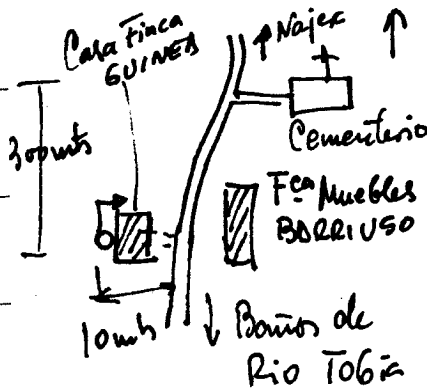 Casa Finca
GUINEA
Najera
Cementerio
300 mts
Fca Muebles
BARRIUSO
10 mts
Baños de
Rio TOBia